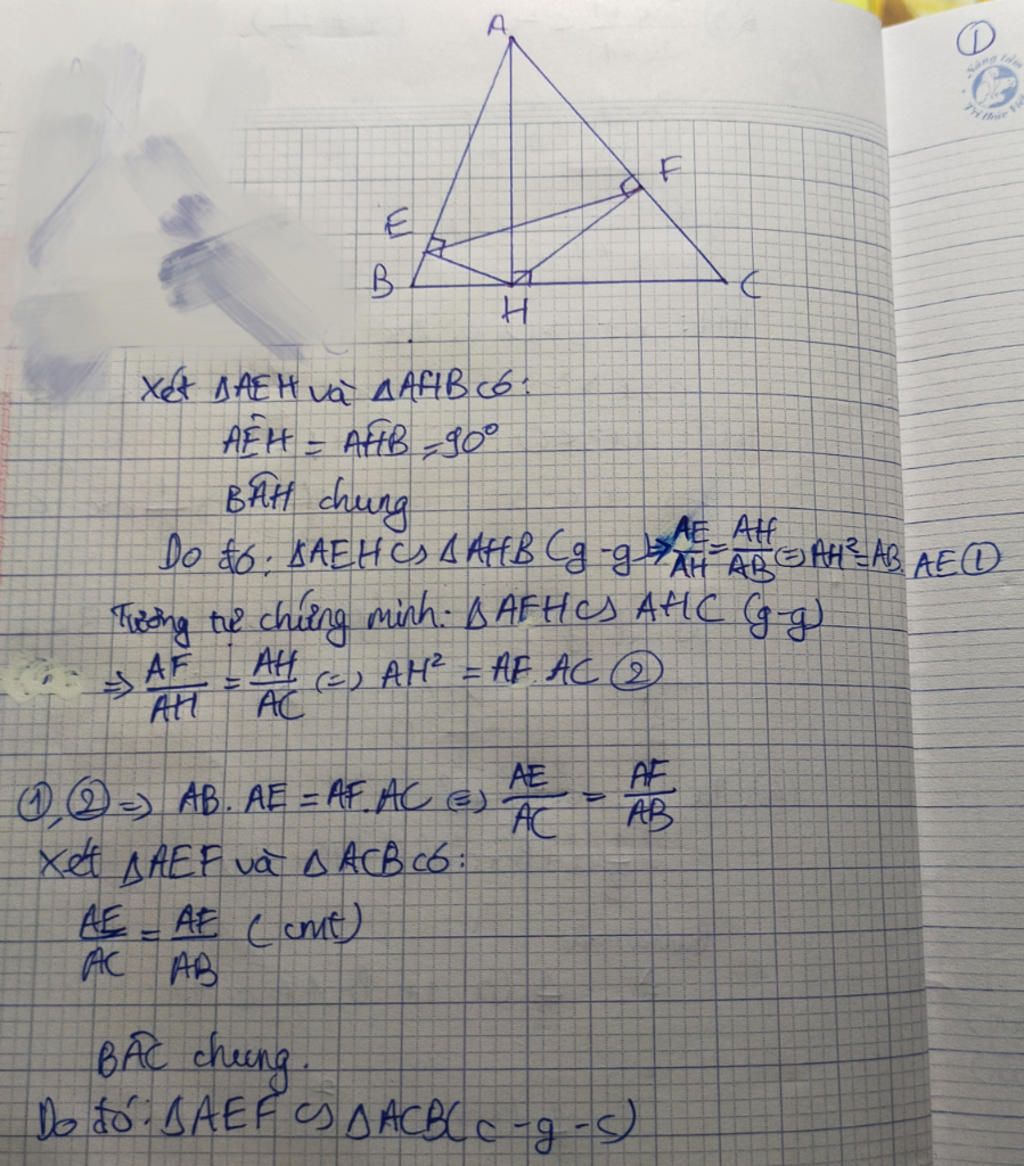 ①
Sáng tâm
Trí thức Việt
A
F
E
B
C
H
Xét ΔAEH và ΔAHB có:
AÊH = AĤB = 90°
BÂH chung
Do đó: ΔAEH ∽ ΔAHB (g-g) ⇒ AE/AH = AH/AB ⇔ AH² = AB.AE ①
Tương tự chứng minh: ΔAFH ∽ AHC (g-g)
⇒ AF/AH = AH/AC ⇔ AH² = AF.AC ②
①, ② ⇒ AB.AE = AF.AC ⇔ AE/AC = AF/AB
Xét ΔAEF và ΔACB có:
AE/AC = AF/AB (cmt)
BÂC chung.
Do đó: ΔAEF ∽ ΔACB (c-g-c)